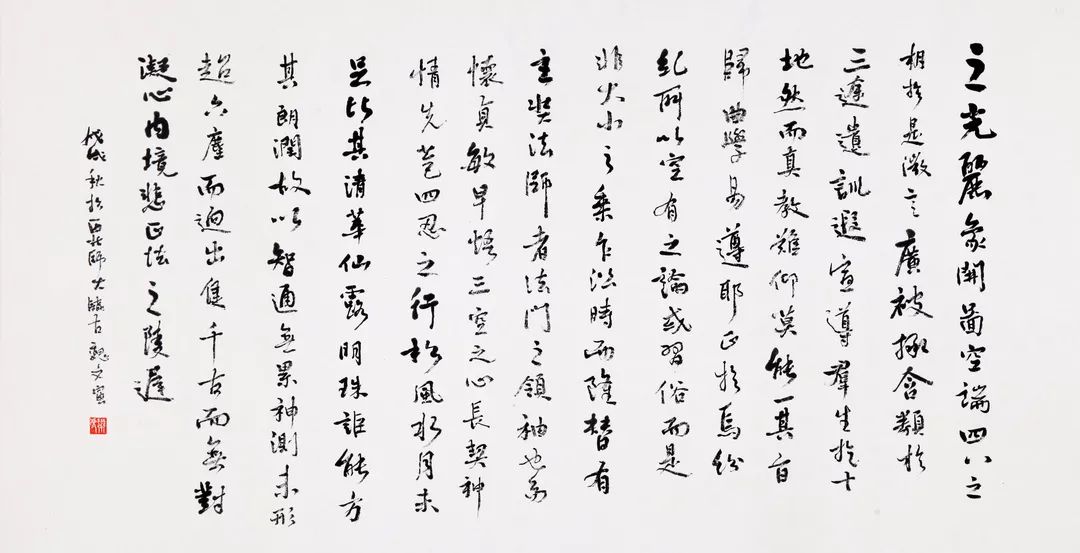 之光麗象開圖空端四八之
相於是微言廣被拯含類於
三途遺訓遐宣導羣生於十
地然而真教難仰莫能一其旨
歸曲學易遵耶正於焉紛
糺所以空有之論或習俗而是
非大小之乘乍沿時而隆替有
玄奘法師者法門之領袖也幼
懷貞敏早悟三空之心長契神
情先苞四忍之行松風水月未
足比其清華仙露明珠詎能方
其朗潤故以智通無累神測未形
超六塵而迥出隻千古而無對
凝心內境悲正法之陵遲
戊戌秋於西北師大臨古魏文